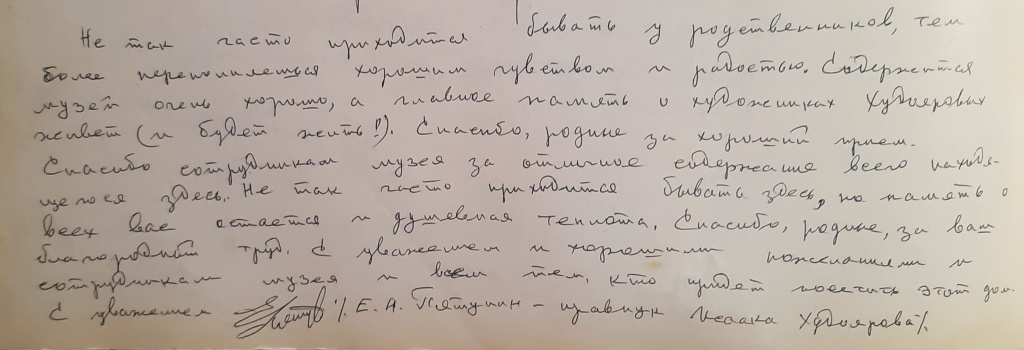 Не так часто приходится бывать у родственников, тем
более переполняешься хорошим чувством и радостью. Содержится
музей очень хорошо, а главное память о художниках Худояровых
живет (и будет жить!). Спасибо, родные за хороший прием.
Спасибо сотрудникам музея за отличное содержание всего находя-
щегося здесь. Не так часто приходится бывать здесь, но память о
всех вас остается и душевная теплота. Спасибо, родные, за ваш
благородный труд. С уважением и хорошими пожеланиями и
сотрудникам музея и всем тем, кто придет посетить этот дом.
С уважением /. Е. А. Петунин - правнук Исаака Худоярова/.